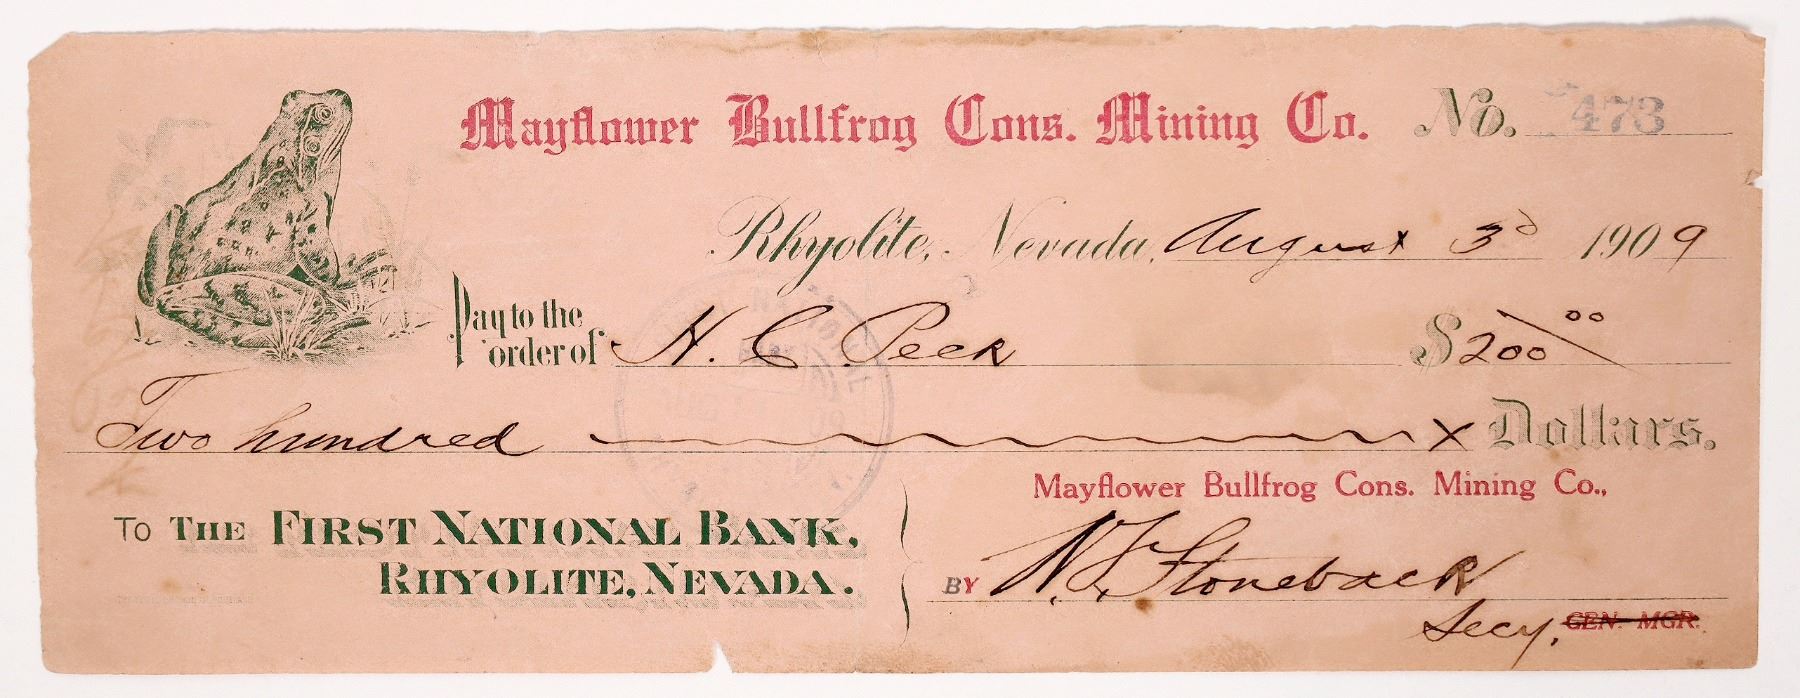 Mayflower Bullfrog Cons. Mining Co. No. 473
Rhyolite, Nevada, August 3d 1909
Pay to the order of H. C. Peck $200 00
Two hundred x Dollars.
Mayflower Bullfrog Cons. Mining Co.,
To The First National Bank,
Rhyolite, Nevada.
BY N. F. Stoneback
Secy. GEN. MGR.